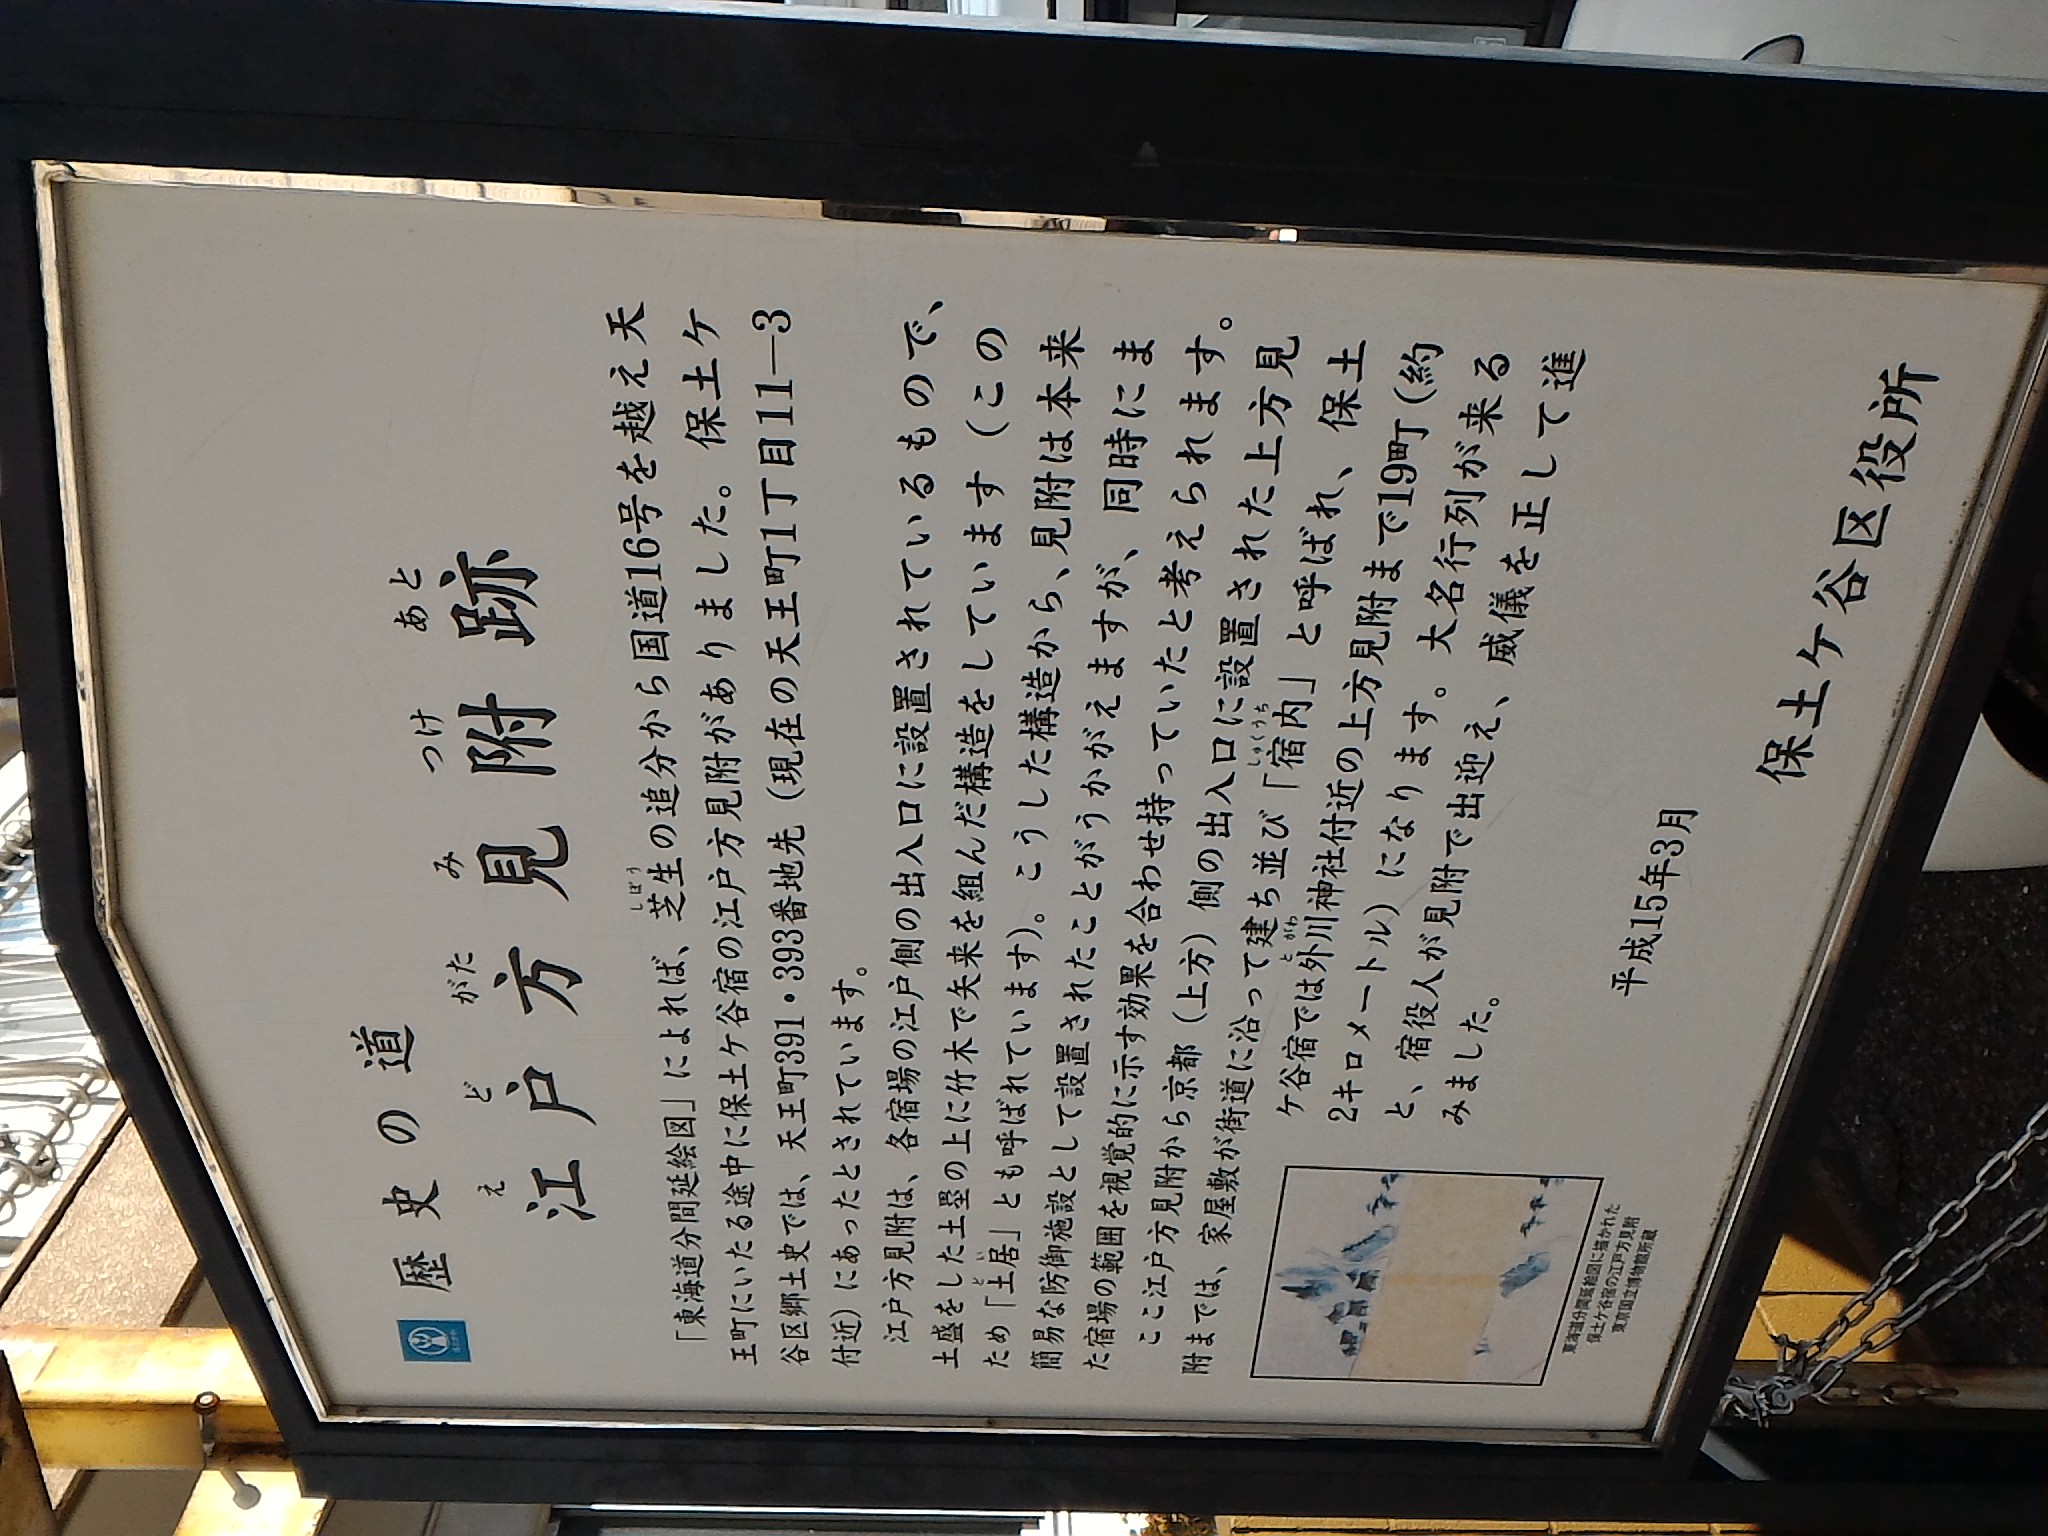 歴史の道
えどがたみつけあと
江戸方見附跡
しぼう
「東海道分間延絵図」によれば、芝生の追分から国道16号を越え天
王町にいたる途中に保土ケ谷宿の江戸方見附がありました。保土ケ
谷区郷土史では、天王町391・393番地先（現在の天王町1丁目11―3
付近）にあったとされています。
江戸方見附は、各宿場の江戸側の出入口に設置されているもので、
土盛をした土塁の上に竹木で矢来を組んだ構造をしています（この
どい
ため「土居」とも呼ばれています）。こうした構造から、見附は本来
簡易な防御施設として設置されたことがうかがえますが、同時にま
た宿場の範囲を視覚的に示す効果を合わせ持っていたと考えられます。
ここ江戸方見附から京都（上方）側の出入口に設置された上方見
しゅくうち
附までは、家屋敷が街道に沿って建ち並び「宿内」と呼ばれ、保土
とがわ
ケ谷宿では外川神社付近の上方見附まで19町（約
2キロメートル）になります。大名行列が来る
と、宿役人が見附で出迎え、威儀を正して進
みました。
東海道分間延絵図に描かれた
保土ケ谷宿の江戸方見附
東京国立博物館所蔵
平成15年3月
保土ケ谷区役所